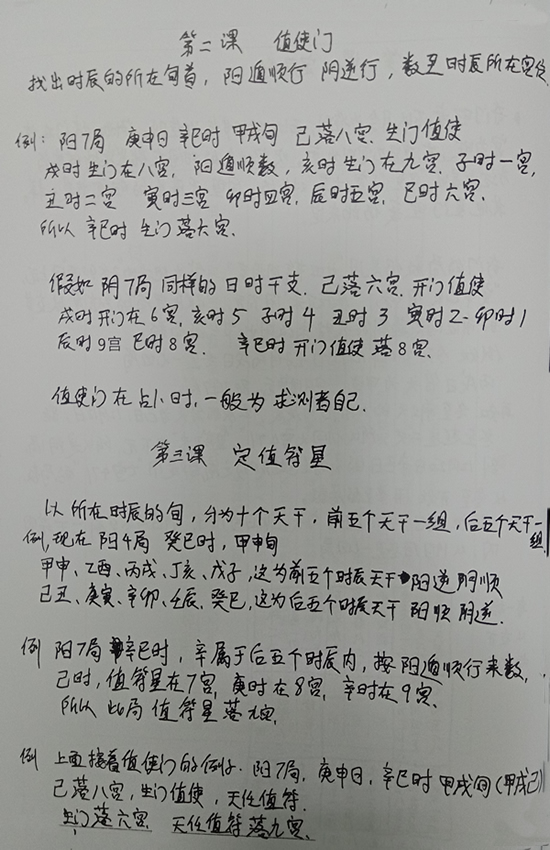 第二课 值使门
找出时辰的所在旬首，阳遁顺行 阴逆行，数丑时辰所在宫位
例：阳7局 庚申日 辛巳时 甲戌旬 己落八宫 生门值使
戌时生门在八宫，阳遁顺数，亥时生门在九宫，子时一宫，
丑时二宫 寅时三宫 卯时四宫，辰时五宫，巳时六宫．
所以 辛巳时 生门落六宫．
假如 阴7局 同样的日时干支．己落六宫．开门值使
戌时开门在6宫，亥时5 子时4 丑时3 寅时2-卯时1
辰时9宫 巳时8宫． 辛巳时 开门值使 落8宫．
值使门在占小时，一般为 求测者自己．
第三课 定值符星
以所在时辰的旬，分为十个天干，前五个天干一组，后五个天干一组
例，现在 阳4局 癸巳时，甲申旬
甲申、乙酉、丙戌、丁亥、戊子，这为前五个时辰天干 阳逆阴顺
己丑、庚寅、辛卯、壬辰、癸巳，这为后五个时辰天干 阳顺 阴逆．
例 阳7局 辛巳时，辛属于后五个时辰内，按阳遁顺行来数，
己时，值符星在7宫，庚时在8宫，辛时在9宫．
所以 此局 值符星落九宫．
例 上面接着值使门的例子．阳7局，庚申日，辛巳时 甲戌旬（甲戌己）
己落八宫，生门值使，天任值符．
生门落六宫 天任值符落九宫．